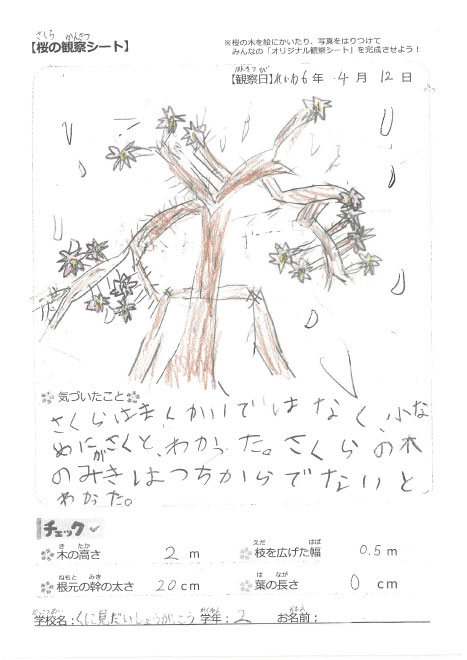 さくら かんさつ
【桜の観察シート】
※桜の木を絵にかいたり、写真をはりつけて
みんなの「オリジナル観察シート」を完成させよう！
かんさつ び
【観察日】れいわ6年 4月 12日
気づいたこと
さくらはまんかいではなく、小な
めにがさくと、わかった。さくらの木
のみきはつちからでないと
わかった。
チェック
き たか
木の高さ 2 m
えだ ひろ はば
枝を広げた幅 0.5 m
ねもと みき
根元の幹の太さ 20 cm
は なが
葉の長さ 0 cm
学校名：くに見だいしょうがっこう 学年：2 お名前：